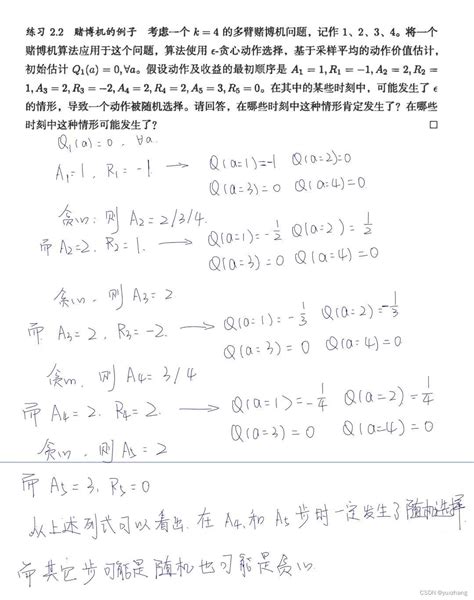 练习 2.2 赌博机的例子 考虑一个 k = 4 的多臂赌博机问题，记作 1、2、3、4。将一个
赌博机算法应用于这个问题，算法使用 ϵ-贪心动作选择，基于采样平均的动作价值估计，
初始估计 Q₁(a) = 0,∀a。假设动作及收益的最初顺序是 A₁ = 1, R₁ = −1, A₂ = 2, R₂ =
1, A₃ = 2, R₃ = −2, A₄ = 2, R₄ = 2, A₅ = 3, R₅ = 0。在其中的某些时刻中，可能发生了 ϵ
的情形，导致一个动作被随机选择。请回答，在哪些时刻中这种情形肯定发生了？在哪些
时刻中这种情形可能发生了？ □
Q₁(a) = 0, ∀a.
A₁=1, R₁ = -1 → Q(a=1)=-1 Q(a=2)=0
Q(a=3) = 0 Q(a=4)=0
贪心: 则 A₂ = 2/3/4.
而 A₂=2, R₂=1. → Q(a=1)=-1/2 Q(a=2) = 1/2
Q(a=3) = 0 Q(a=4) = 0
贪心. 则 A₃ = 2
而 A₃ = 2, R₃ = -2. → Q(a=1) = -1/3 Q(a=2)=-1/3
Q(a=3) = 0 Q(a=4) = 0
贪心. 则 A₄ = 3/4
而 A₄ = 2. R₄ = 2. → Q(a=1) = -1/4 Q(a=2) = 1/4
Q(a=3) = 0 Q(a=4) = 0
贪心. 则 A₅ = 2
而 A₅ = 3, R₅ = 0
从上述列式可以看出. 在 A₄ 和 A₅ 步时一定发生了随机选择
而其它步可能是随机也可能是贪心.
CSDN @yuizhang